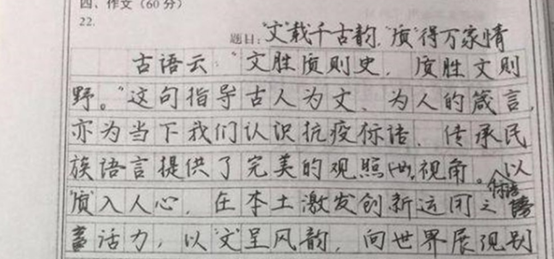 四、作文(60分)
22.
题目:“文”载千古韵,“质”得万家情
古语云:“文胜质则史,质胜文则
野。”这句指导古人为文、为人的箴言,
亦为当下我们认识抗疫标语、传承民
族语言提供了完美的观照视角。以
“质”入人心,在本土激发创新运用之标语
活力,以“文”呈风韵,向世界展现别